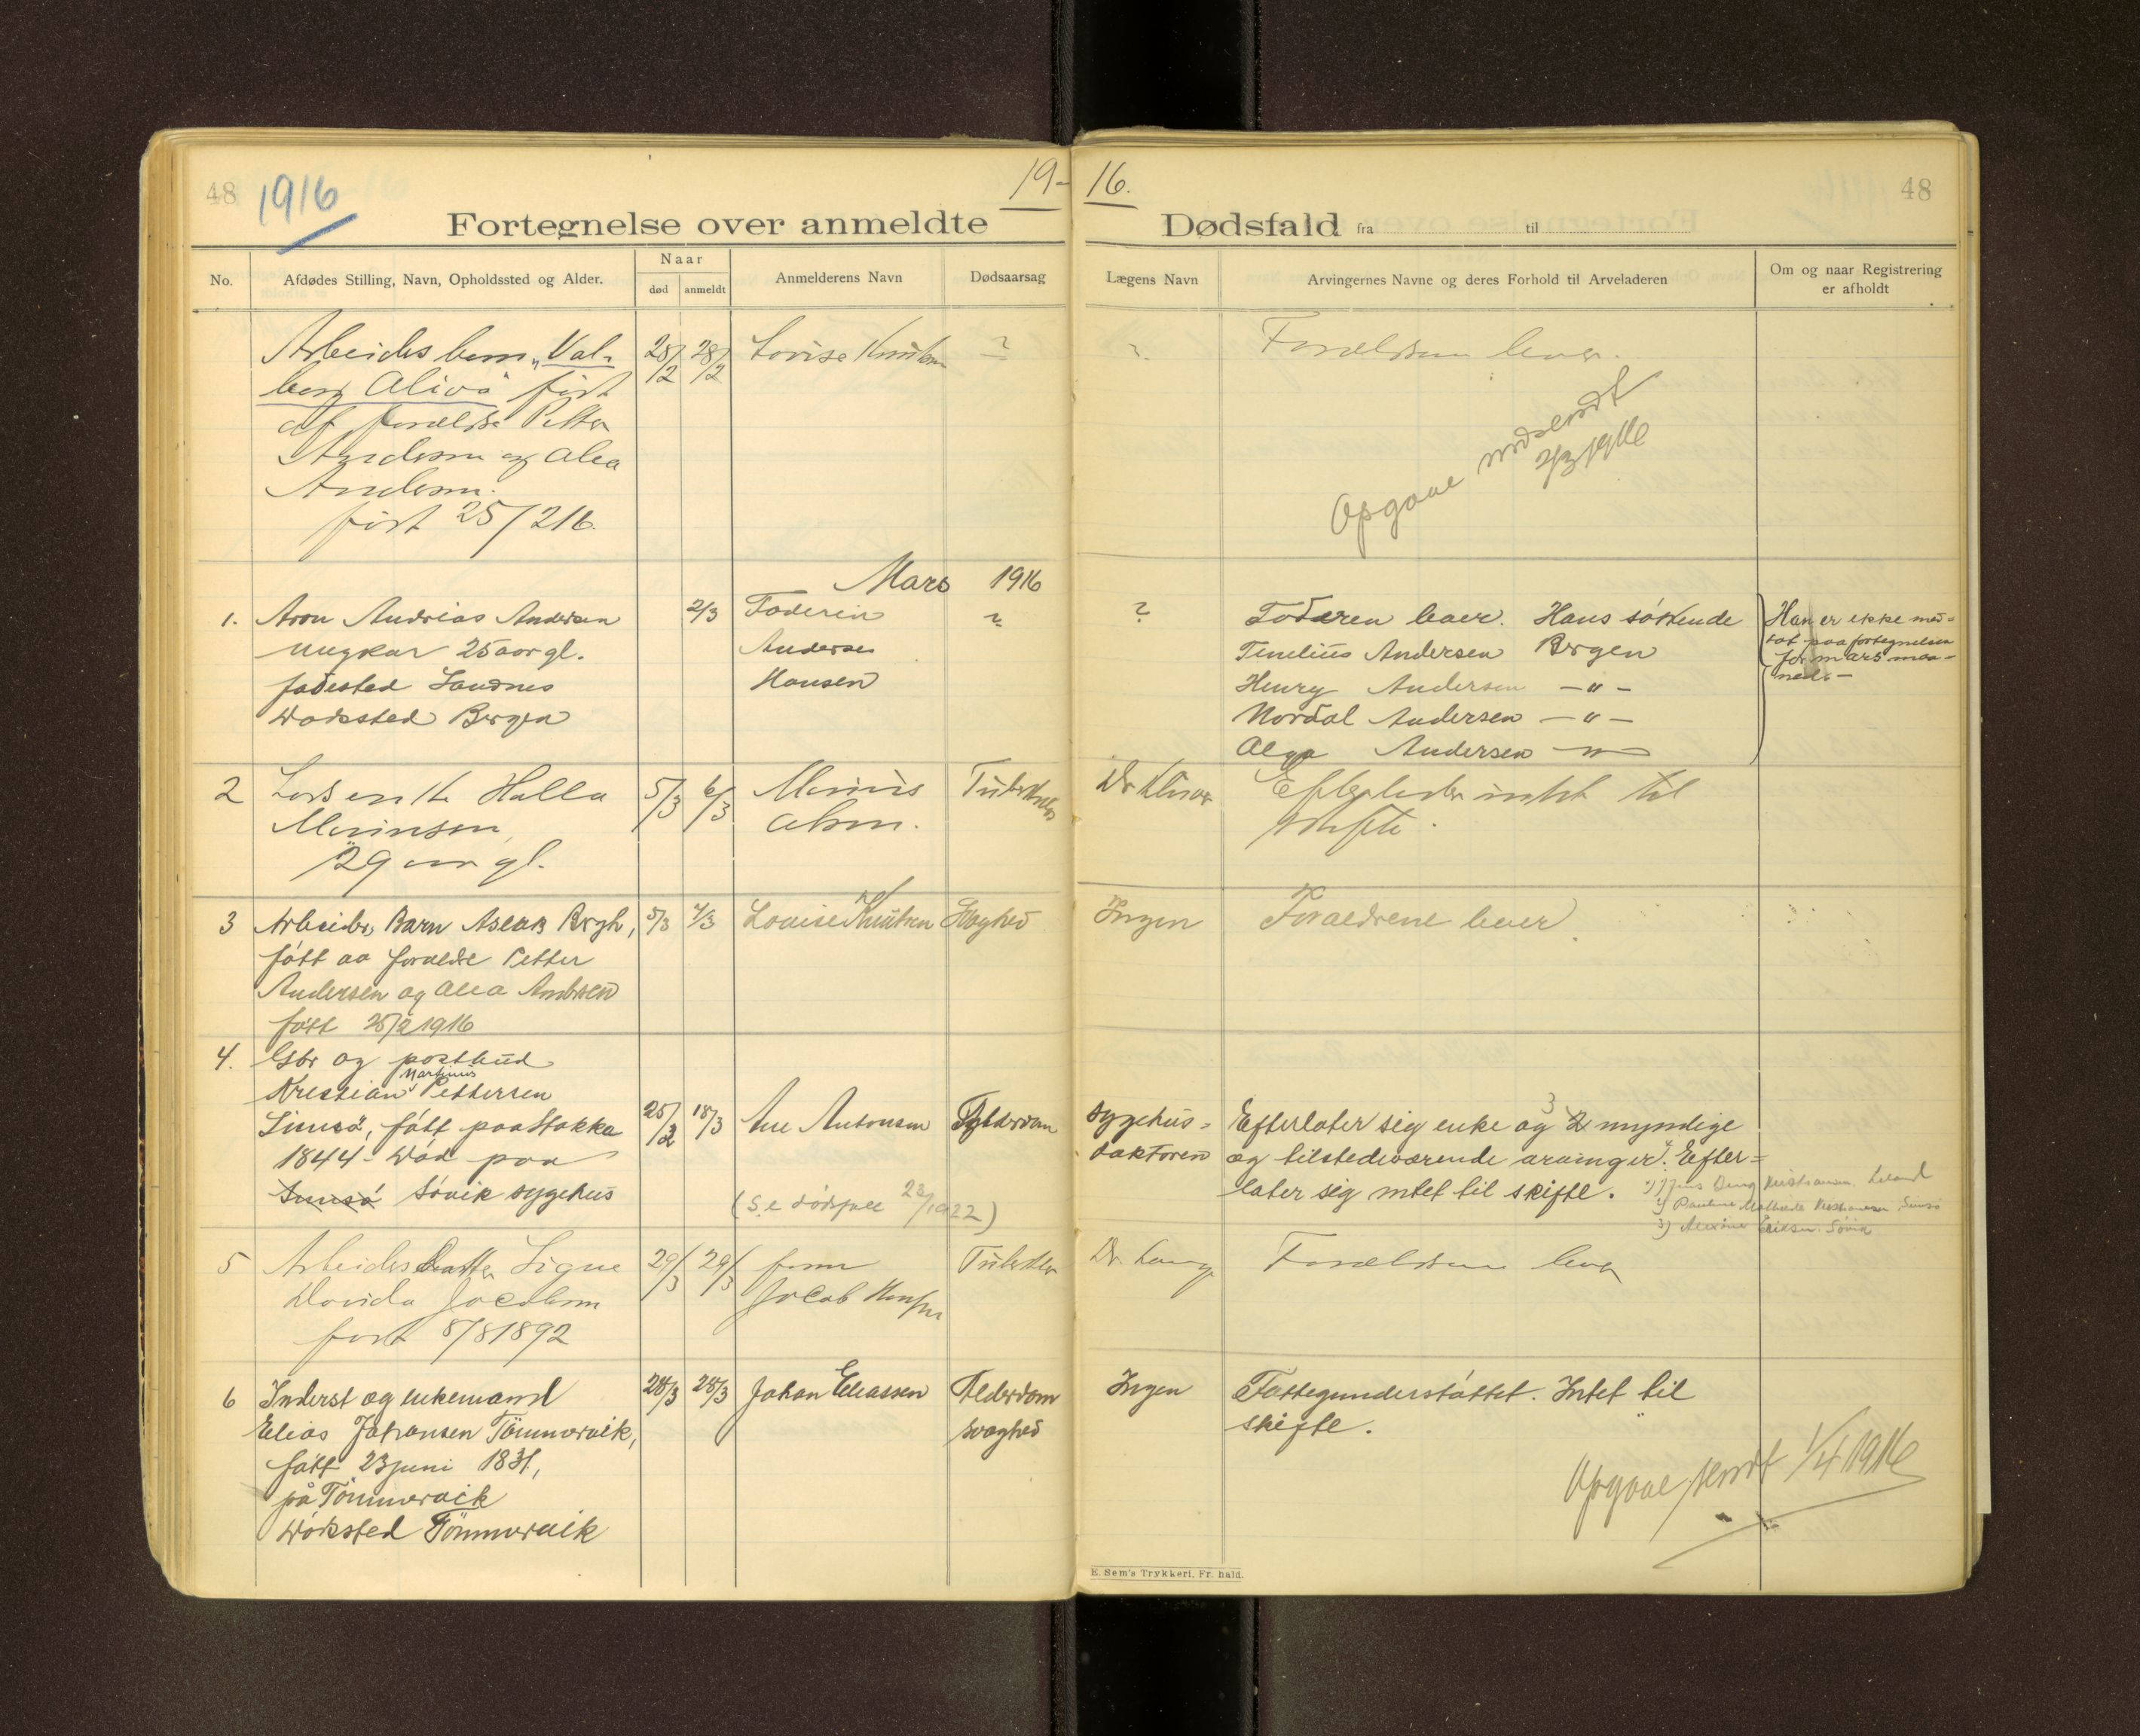 48
1916
19-
16.
48
Fortegnelse over anmeldte
Dødsfald fra til
No.
Afdødes Stilling, Navn, Opholdssted og Alder.
Naar
død
anmeldt
Anmelderens Navn
Dødsaarsag
Lægens Navn
Arvingernes Navne og deres Forhold til Arveladeren
Om og naar Registrering
er afholdt
Arbeids barn „Val-
borg Oliva" født
af foreldre Petter
Andersen og Alea
Andersen.
født 25/2 16.
28/2
28/2
Lovise Knutsen
?
?
Foreldrene lever.
Opgave nedsendt
2/3 1916
Mars 1916
1.
Aron Andreas Andersen
ungkar 25 aar gl.
fødested Sandnes
Dødssted Bergen
2/3
Faderen
Anders
Hansen
?
?
Faderen lever. Hans søskende
Andersen Bergen
Henry Andersen — " —
Nordal Andersen — " —
Olga Andersen — " —
Han er ikke med-
tat paa fortegnelsen
for mars maa-
ned. —
2
Halla
Marinsen,
29 aar gl.
5/3
6/3
Marius
Olsen.
Tuberkulos
Dr Klüver
Efterlader intet til
skifte.
3
Arbeider Barn Aslak Bergh,
født av foreldre Petter
Andersen og Alea Andersen
født 25/2 1916
5/3
7/3
Louise Knutsen
Svaghed
Ingen
Foraeldrene lever.
4.
Gbr og postbud
Martinus
Kristian Pettersen
født paa Stokka
1844 - Død paa
Søvik sygehus
25/2
18/3
Ane Antonsen
Alderdom
(Se dødsfall 23/1922)
Sygehus-
doktoren
3
Efterlater sig enke og 2 myndige
og tilstedeværende arvinger. Efter-
later sig intet til skifte.
1) Jens Kristiansen. Leland
2) Pauline Mathilde Kristiansen
3) Eriksen. Søvik
5
Arbeids Datter Signe
Davida Jacobsen
født 8/8 1892
29/3
29/3
Jacob
Tuberkler
Dr. Lange
Foreldrene lever
6
Inderst og enkemand
Elias Johansen Tømmervik,
født 23 juni 1831,
på Tømmervik
Dødssted Tømmervik
28/3
28/3
Johan Eliassen
Alderdom
svaghed
Ingen
Fattigunderstøttet. Intet til
skifte.
Opgave sendt 1/4 1916
E. Sem's Trykkeri, Fr. hald.